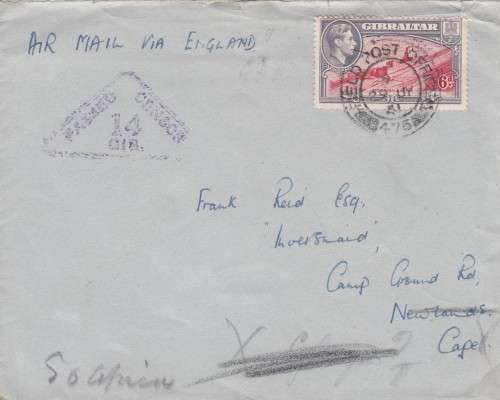 AIR MAIL VIA ENGLAND
GIBRALTAR
6d
FIELD POST OFFICE
29 JY
41
475
PASSED CENSOR
14
GIB.
Frank Reid Esq.
"Inversnaid",
Camp Ground Rd,
Newlands.
Cape
So Africa
X